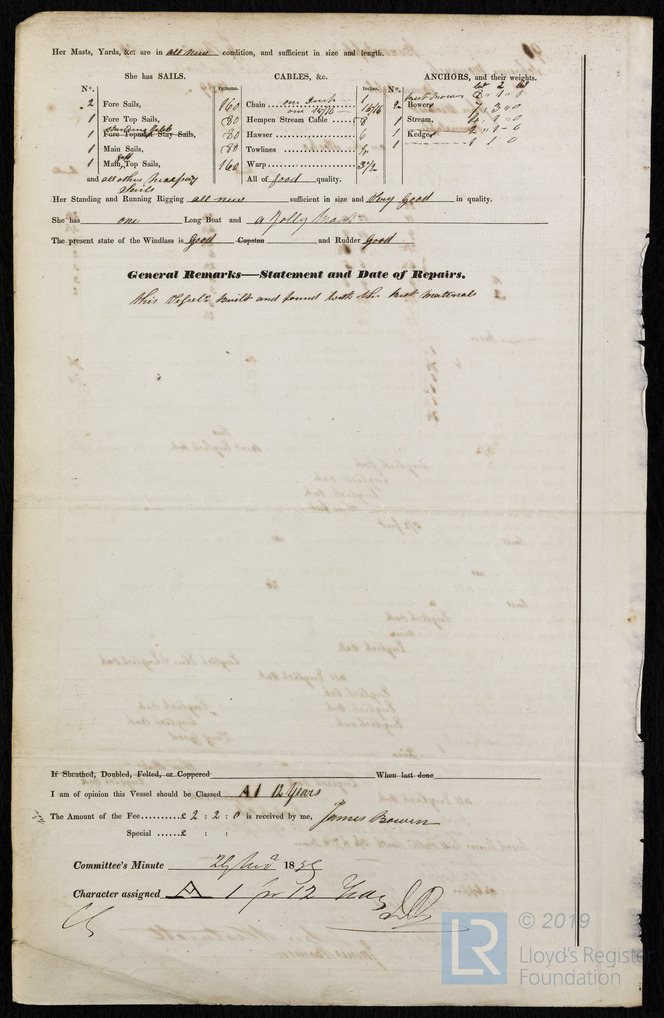 Her Masts, Yards, &c. are in all new condition, and sufficient in size and length.
She has SAILS.
CABLES, &c.
ANCHORS, and their weights.
N°.
Fathoms.
Inches.
N°.
2 Fore Sails,
160 Chain one Inch 1
one 15/16 15/16
best Bowers
2 Bowers 7 " 3 " 0
1 Fore Top Sails,
80 Hempen Stream Cable 8
1 Stream,
standing Gibb
1 Fore Topmast Stay Sails,
80 Hawser 6
1 Kedges
1 Main Sails,
80 Towlines
Gaff
1 Main Top Sails,
160 Warp 3½
and all other necessary Sails
All of good quality.
Her Standing and Running Rigging all new sufficient in size and Very Good in quality.
She has one Long Boat and a Jolly Boat
The present state of the Windlass is Good Capstan and Rudder Good
General Remarks—Statement and Date of Repairs.
this Vessel built and found with the best materials
If Sheathed, Doubled, Felted, or Coppered When last done
I am of opinion this Vessel should be Classed A 1 12 Years
The Amount of the Fee..........£ 2 : 2 : 0 is received by me, James Bowen
Special ......£ : :
Committee's Minute 18
Character assigned A 1 for 12 Years
© 2019
LR
Lloyd's Register
Foundation